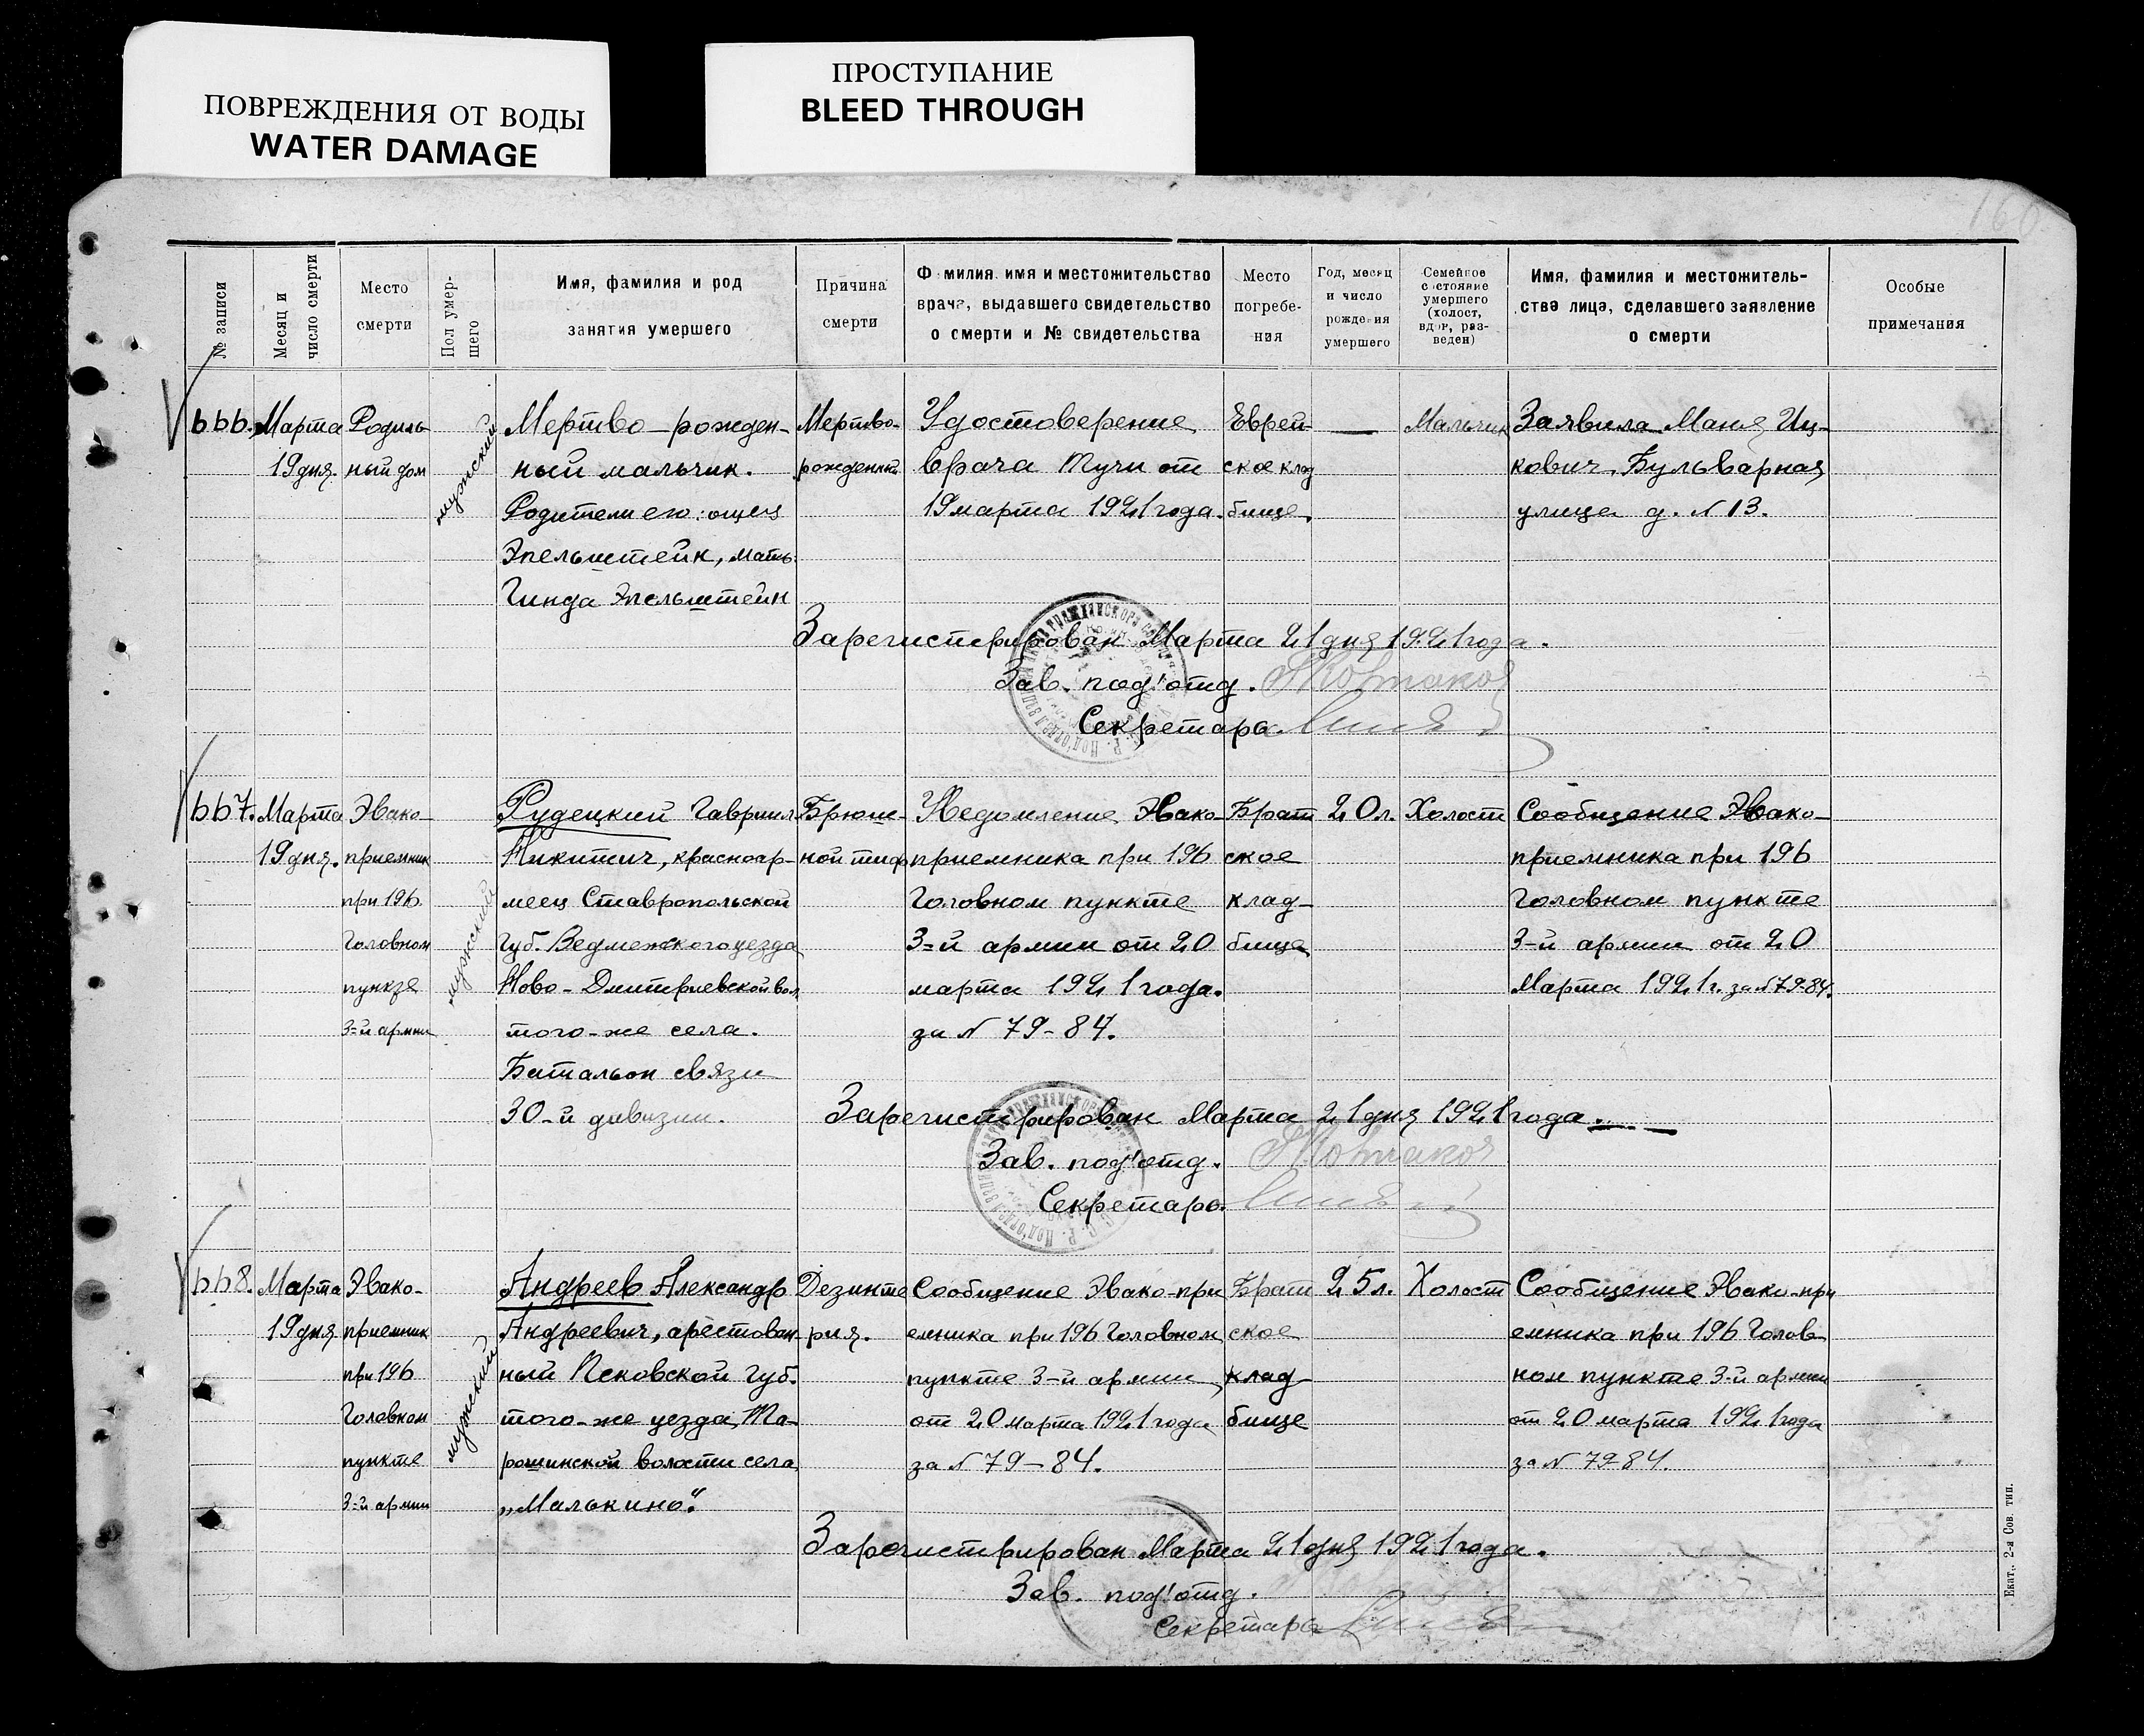 ПОВРЕЖДЕНИЯ ОТ ВОДЫ
WATER DAMAGE
ПРОСТУПАНИЕ
BLEED THROUGH
160
№ записи
Месяц и
число смерти
Место
смерти
Пол умер-
шего
Имя, фамилия и род
занятия умершего
Причина
смерти
Фамилия, имя и местожительство
врача, выдавшего свидетельство
о смерти и № свидетельства
Место
погребе-
ния
Год, месяц
и число
рождения
умершего
Семейное
состояние
умершего
(холост,
вдов, раз-
веден)
Имя, фамилия и местожитель-
ства лица, сделавшего заявление
о смерти
Особые
примечания
666.
Марта
19 дня.
Родиль
ный дом
мужский
Мертво-рожден-
ный мальчик.
Родители его: отец
Эпельштейн, мать
Гинда Эпельштейн
Мертво-
рожденный
Удостоверение
врача Тучи от
19 марта 1921 года.
Еврей-
ское клад
бище.
—
Мальчик
Заявила Маня Иц-
кович, Бульварная
улица д. N 13.
Зарегистрирован Марта 21 дня 1921 года.
Зав. под'отд.
Секретарь
667.
Марта
19 дня.
Эвако-
приемник
при 196
Головном
пункте
3-й армии
мужский
Рудецкий Гавриил
Никитич, красноар-
меец Ставропольской
Губ. Ведмежского уезда
Ново-Дмитриевской вол
того-же села.
Батальон связи
30-й дивизии.
Брюш-
ной тиф
Уведомление Эвако-
приемника при 196
Головном пункте
3-й армии от 20
марта 1921 года.
за N 79-84.
Брат
ское
клад-
бище
20 л.
Холост
Сообщение Эвако-
приемника при 196
Головном пункте
3-й армии от 20
Марта 1921 г. за N 79-84.
Зарегистрирован Марта 21 дня 1921 года.
Зав. под'отд.
Секретарь.
668.
Марта
19 дня
Эвако-
приемник
при 196
Головном
пункте
3-й армии
мужский
Андреев Александр
Андреевич, арестован
ный Псковской Губ.
того-же уезда, То-
рошинской волости села
„Малькино".
Дезинте
рия.
Сообщение Эвако-при
емника при 196 Головном
пункте 3-й армии
от 20 марта 1921 года
за N 79-84.
Брат
ское
клад-
бище
25 л.
Холост
Сообщение Эвако-при
емника при 196 Голов
ном пункте 3-й армии
от 20 марта 1921 года
за N 79-84.
Зарегистрирован Марта 21 дня 1921 года.
Зав. под'отд.
Секретарь
Екат. 2-я Сов. тип.